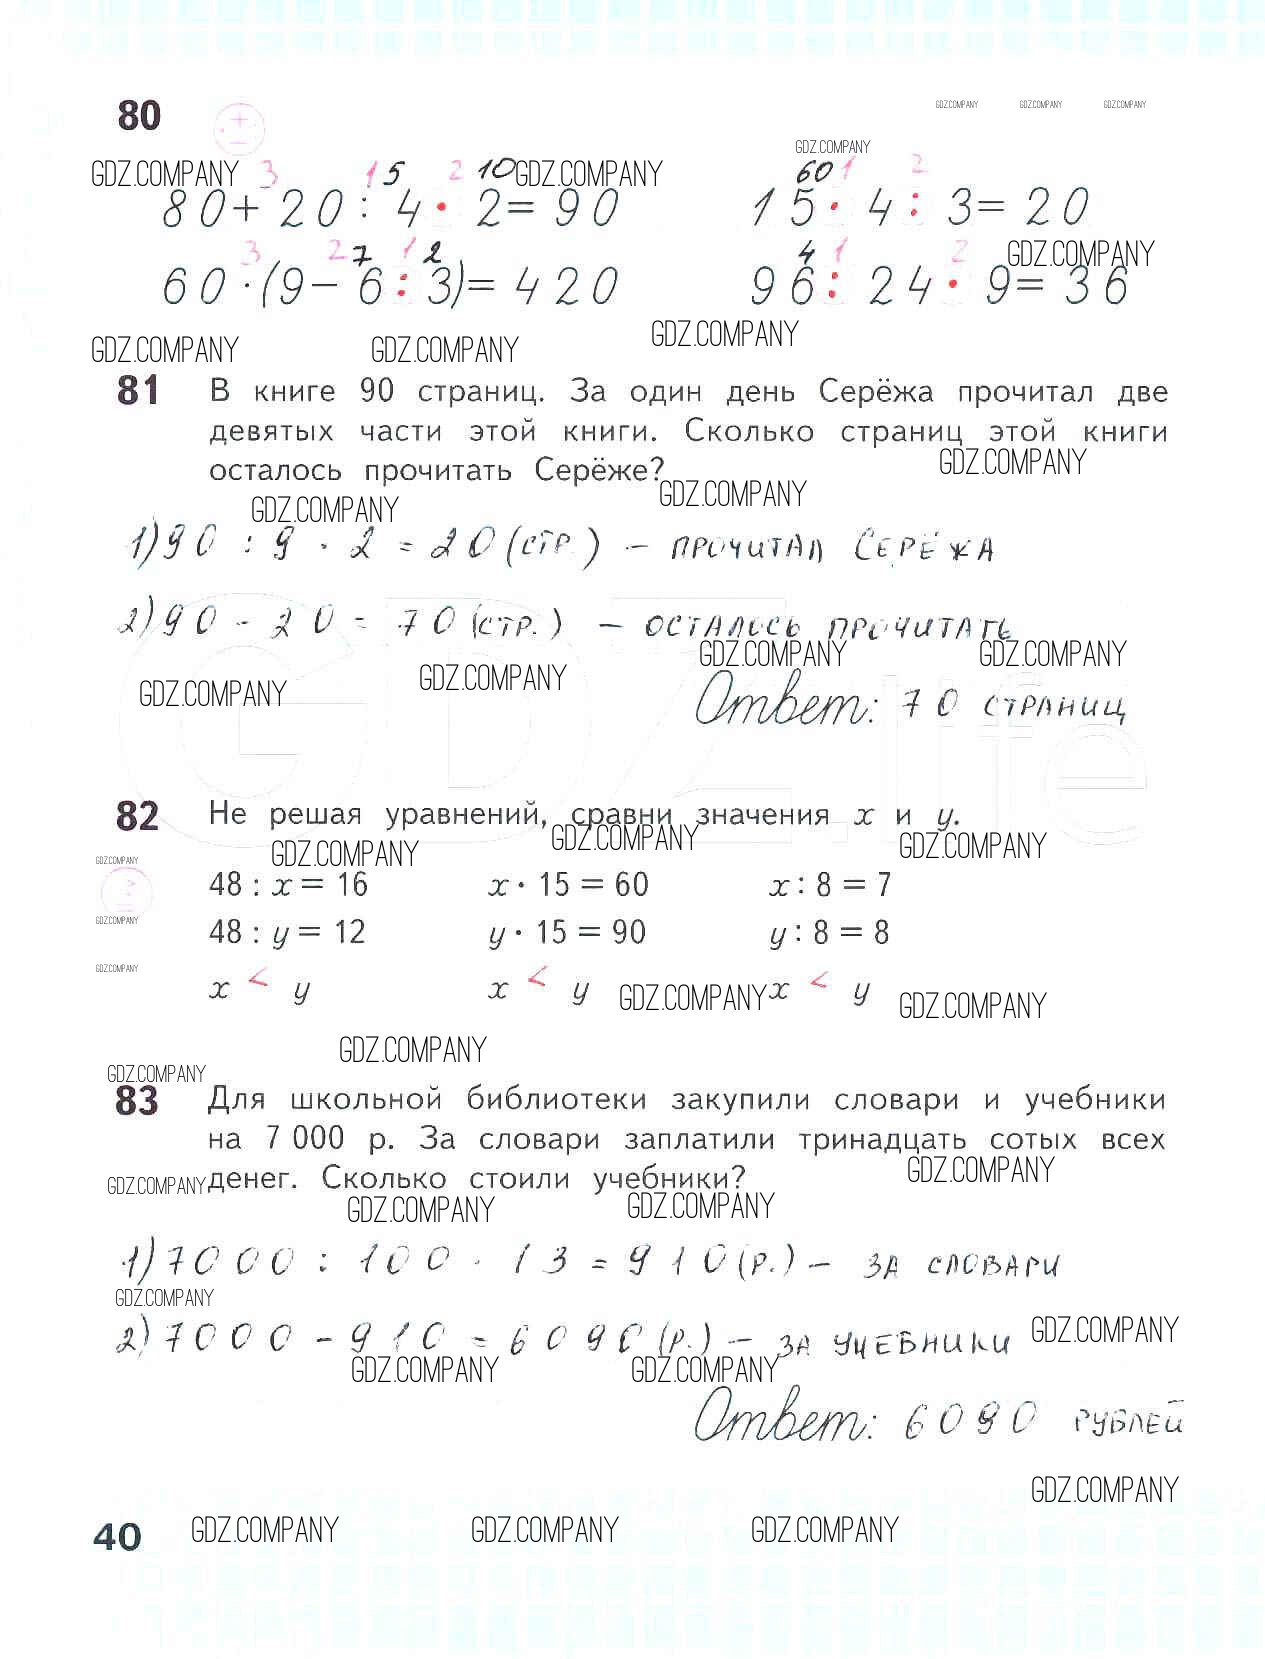 80
GDZ.COMPANY GDZ.COMPANY GDZ.COMPANY
+
−
GDZ.COMPANY
GDZ.COMPANY 3 1 5 2 10 GDZ.COMPANY 60 1 2
80 + 20 : 4 · 2 = 90 15 · 4 : 3 = 20
3 2 7 1 2 4 1 2 GDZ.COMPANY
60 · (9 − 6 : 3) = 420 96 : 24 · 9 = 36
GDZ.COMPANY GDZ.COMPANY GDZ.COMPANY
81 В книге 90 страниц. За один день Серёжа прочитал две
девятых части этой книги. Сколько страниц этой книги
осталось прочитать Серёже?
GDZ.COMPANY
GDZ.COMPANY GDZ.COMPANY
1) 90 : 9 · 2 = 20 (стр.) – прочитал Серёжа
2) 90 - 20 = 70 (стр.) – осталось прочитать
GDZ.COMPANY GDZ.COMPANY
GDZ.COMPANY GDZ.COMPANY
Ответ: 70 страниц
GDZ.life
82 Не решая уравнений, сравни значения x и y.
GDZ.COMPANY GDZ.COMPANY GDZ.COMPANY
GDZ.COMPANY
48 : x = 16 x · 15 = 60 x : 8 = 7
GDZ.COMPANY
48 : y = 12 y · 15 = 90 y : 8 = 8
GDZ.COMPANY
x < y x < y x < y
GDZ.COMPANY GDZ.COMPANY
GDZ.COMPANY
GDZ.COMPANY
83 Для школьной библиотеки закупили словари и учебники
на 7 000 р. За словари заплатили тринадцать сотых всех
денег. Сколько стоили учебники?
GDZ.COMPANY GDZ.COMPANY
GDZ.COMPANY GDZ.COMPANY
1) 7000 : 100 · 13 = 910 (р.) – за словари
GDZ.COMPANY
2) 7000 – 910 = 6090 (р.) – за учебники
GDZ.COMPANY
GDZ.COMPANY GDZ.COMPANY
Ответ: 6090 рублей
GDZ.COMPANY
40 GDZ.COMPANY GDZ.COMPANY GDZ.COMPANY